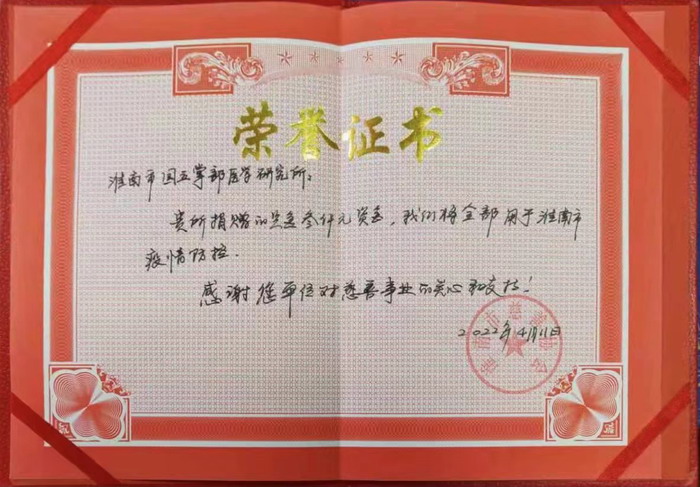 荣誉证书
淮南市国立掌部医学研究所：
贵所捐赠的叁仟元资金，我们将全部用于淮南市
疫情防控.
感谢 单位对慈善事业的关心和支持！
2022年4月11日
淮南市慈善协会